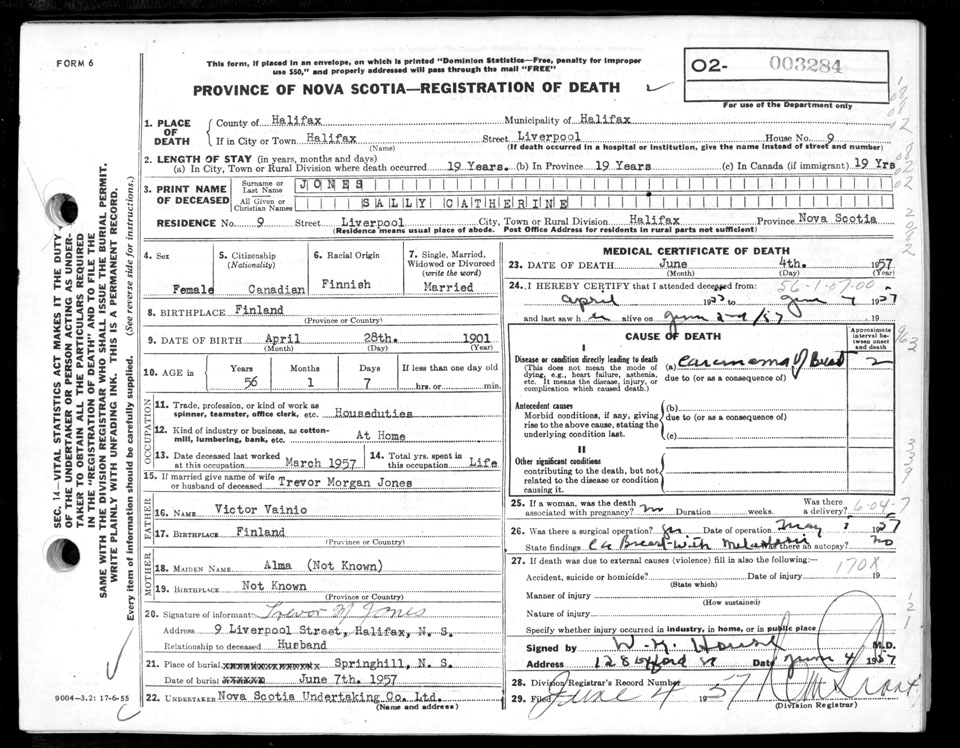 FORM 6
This form, if placed in an envelope, on which is printed "Dominion Statistics—Free, penalty for improper
use $50," and properly addressed will pass through the mail "FREE"
PROVINCE OF NOVA SCOTIA—REGISTRATION OF DEATH
02- 003284
For use of the Department only
1. PLACE OF DEATH
County of Halifax Municipality of Halifax
If in City or Town Halifax Street Liverpool House No. 9
(Name) (If death occurred in a hospital or institution, give the name instead of street and number)
2. LENGTH OF STAY (in years, months and days)
(a) In City, Town or Rural Division where death occurred 19 Years. (b) In Province 19 Years (c) In Canada (if immigrant) 19 Yrs
3. PRINT NAME OF DECEASED
Surname or Last Name JONES
All Given or Christian Names SALLY CATHERINE
RESIDENCE No. 9 Street Liverpool City, Town or Rural Division Halifax Province Nova Scotia
(Residence means usual place of abode. Post Office Address for residents in rural parts not sufficient)
SEC. 14—VITAL STATISTICS ACT MAKES IT THE DUTY
OF THE UNDERTAKER OR PERSON ACTING AS UNDER-
TAKER TO OBTAIN ALL THE PARTICULARS REQUIRED
IN THE "REGISTRATION OF DEATH" AND TO FILE THE
SAME WITH THE DIVISION REGISTRAR WHO SHALL ISSUE THE BURIAL PERMIT.
WRITE PLAINLY WITH UNFADING INK. THIS IS A PERMANENT RECORD.
Every item of information should be carefully supplied. (See reverse side for instructions.)
4. Sex
Female
5. Citizenship
(Nationality)
Canadian
6. Racial Origin
Finnish
7. Single, Married,
Widowed or Divorced
(write the word)
Married
8. BIRTHPLACE Finland
(Province or Country)
9. DATE OF BIRTH April 28th. 1901
(Month) (Day) (Year)
10. AGE in Years Months Days If less than one day old
56 1 7 hrs. or min.
OCCUPATION
11. Trade, profession, or kind of work as
spinner, teamster, office clerk, etc. Houseduties
12. Kind of industry or business, as cotton-
mill, lumbering, bank, etc. At Home
13. Date deceased last worked
at this occupation March 1957
14. Total yrs. spent in
this occupation Life
15. If married give name of wife
or husband of deceased Trevor Morgan Jones
FATHER
16. NAME Victor Vainio
17. BIRTHPLACE Finland
(Province or Country)
MOTHER
18. MAIDEN NAME Alma (Not Known)
19. BIRTHPLACE Not Known
(Province or Country)
20. Signature of informant Trevor M Jones
Address 9 Liverpool Street, Halifax, N. S.
Relationship to deceased Husband
21. Place of burial Springhill, N. S.
Date of burial June 7th. 1957
22. UNDERTAKER Nova Scotia Undertaking Co. Ltd.
(Name and address)
9004—3.2: 17-6-55
MEDICAL CERTIFICATE OF DEATH
23. DATE OF DEATH June 4th. 1957
(Month) (Day) (Year)
24. I HEREBY CERTIFY that I attended deceased from: 56-1-07-00
April to June 1957
and last saw her alive on June 19
CAUSE OF DEATH
Approximate
interval be-
tween onset
and death
I
Disease or condition directly leading to death
(This does not mean the mode of
dying, e.g., heart failure, asthenia,
etc. It means the disease, injury, or
complication which caused death.)
(a) Carcinoma of Breast 2
due to (or as a consequence of)
Antecedent causes
Morbid conditions, if any, giving
rise to the above cause, stating the
underlying condition last.
(b)
due to (or as a consequence of)
(c)
II
Other significant conditions
contributing to the death, but not
related to the disease or condition
causing it.
25. If a woman, was the death
associated with pregnancy? No Duration weeks. Was there
a delivery? 6-04-7
26. Was there a surgical operation? Yes Date of operation May 1957
State findings Ca Breast with Metastasis Was there an autopsy? No
27. If death was due to external causes (violence) fill in also the following:—
170X
Accident, suicide or homicide? Date of injury 19
(State which)
Manner of injury
(How sustained)
Nature of injury
Specify whether injury occurred in industry, in home, or in public place
Signed by M.D.
Address 128 Oxford St Date June 4 1957
28. Division Registrar's Record Number
29. Filed June 4 1957
(Division Registrar)